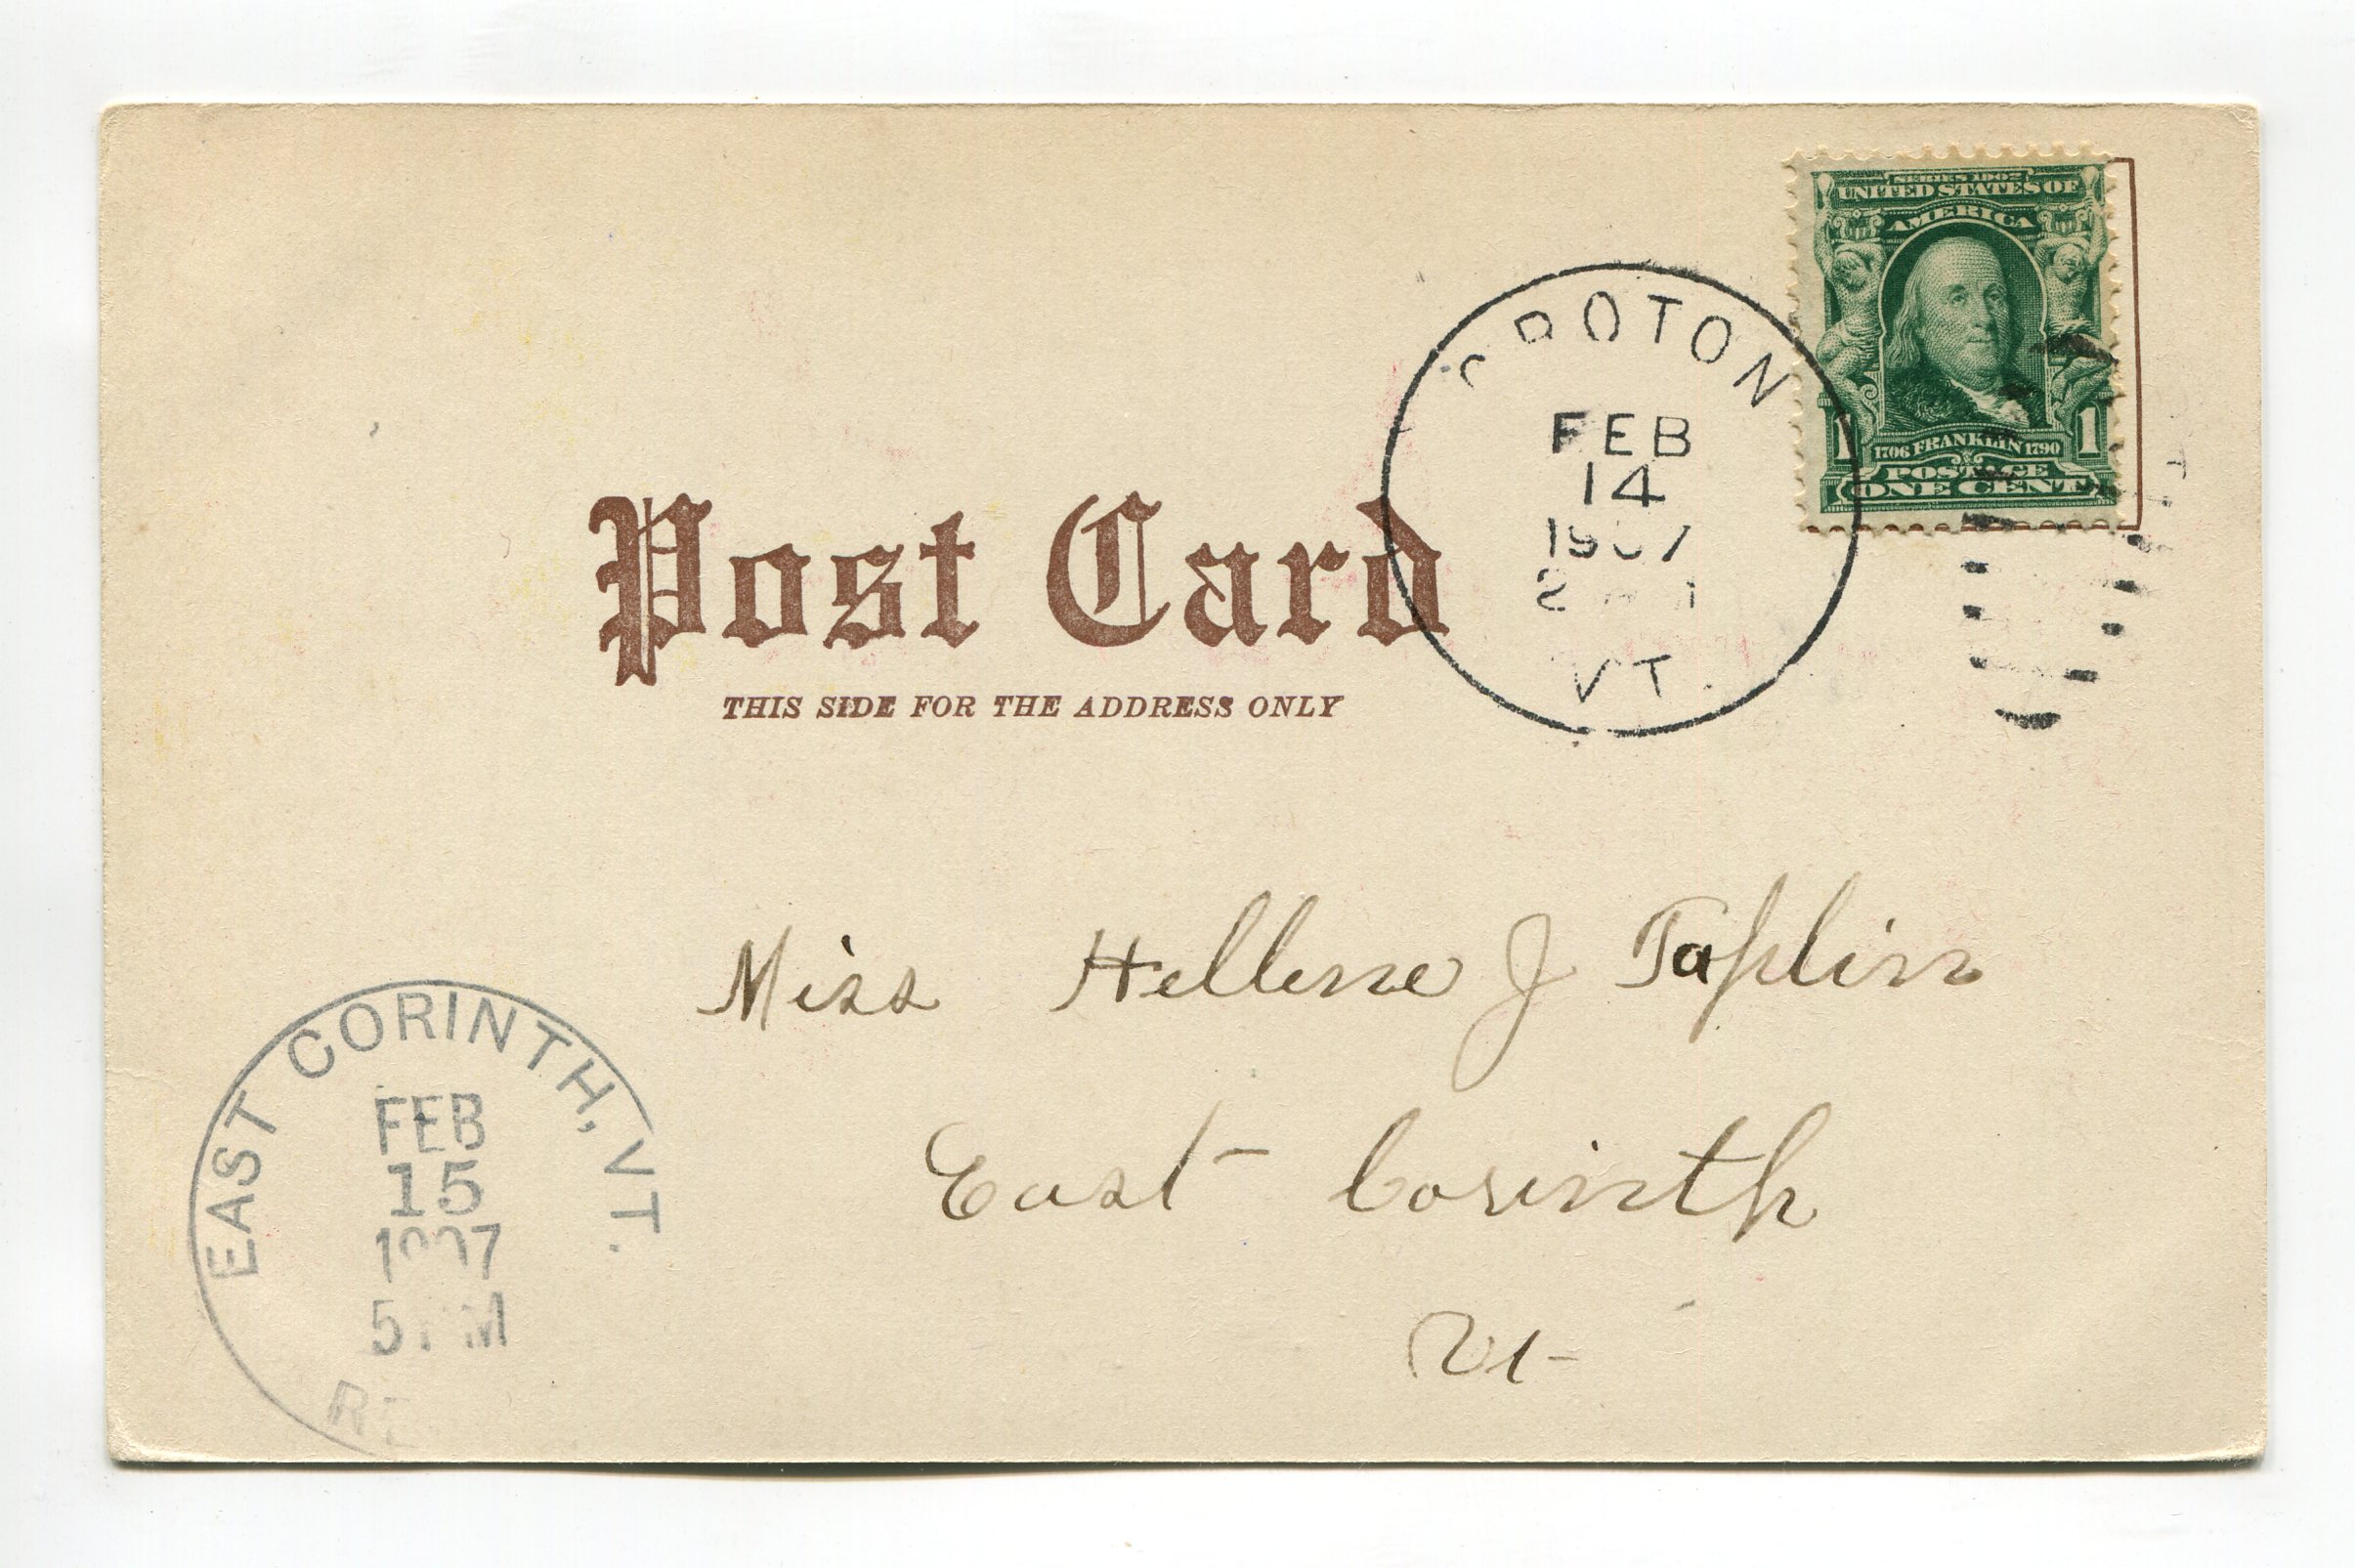 SERIES 1902
UNITED STATES OF
AMERICA
1 1706 FRANKLIN 1790 1
POSTAGE
ONE CENT
GROTON
FEB
14
1907
VT.
Post Card
THIS SIDE FOR THE ADDRESS ONLY
Miss Hellene J Taplin
East Corinth
Vt
EAST CORINTH, VT.
FEB
15
1907
5 PM